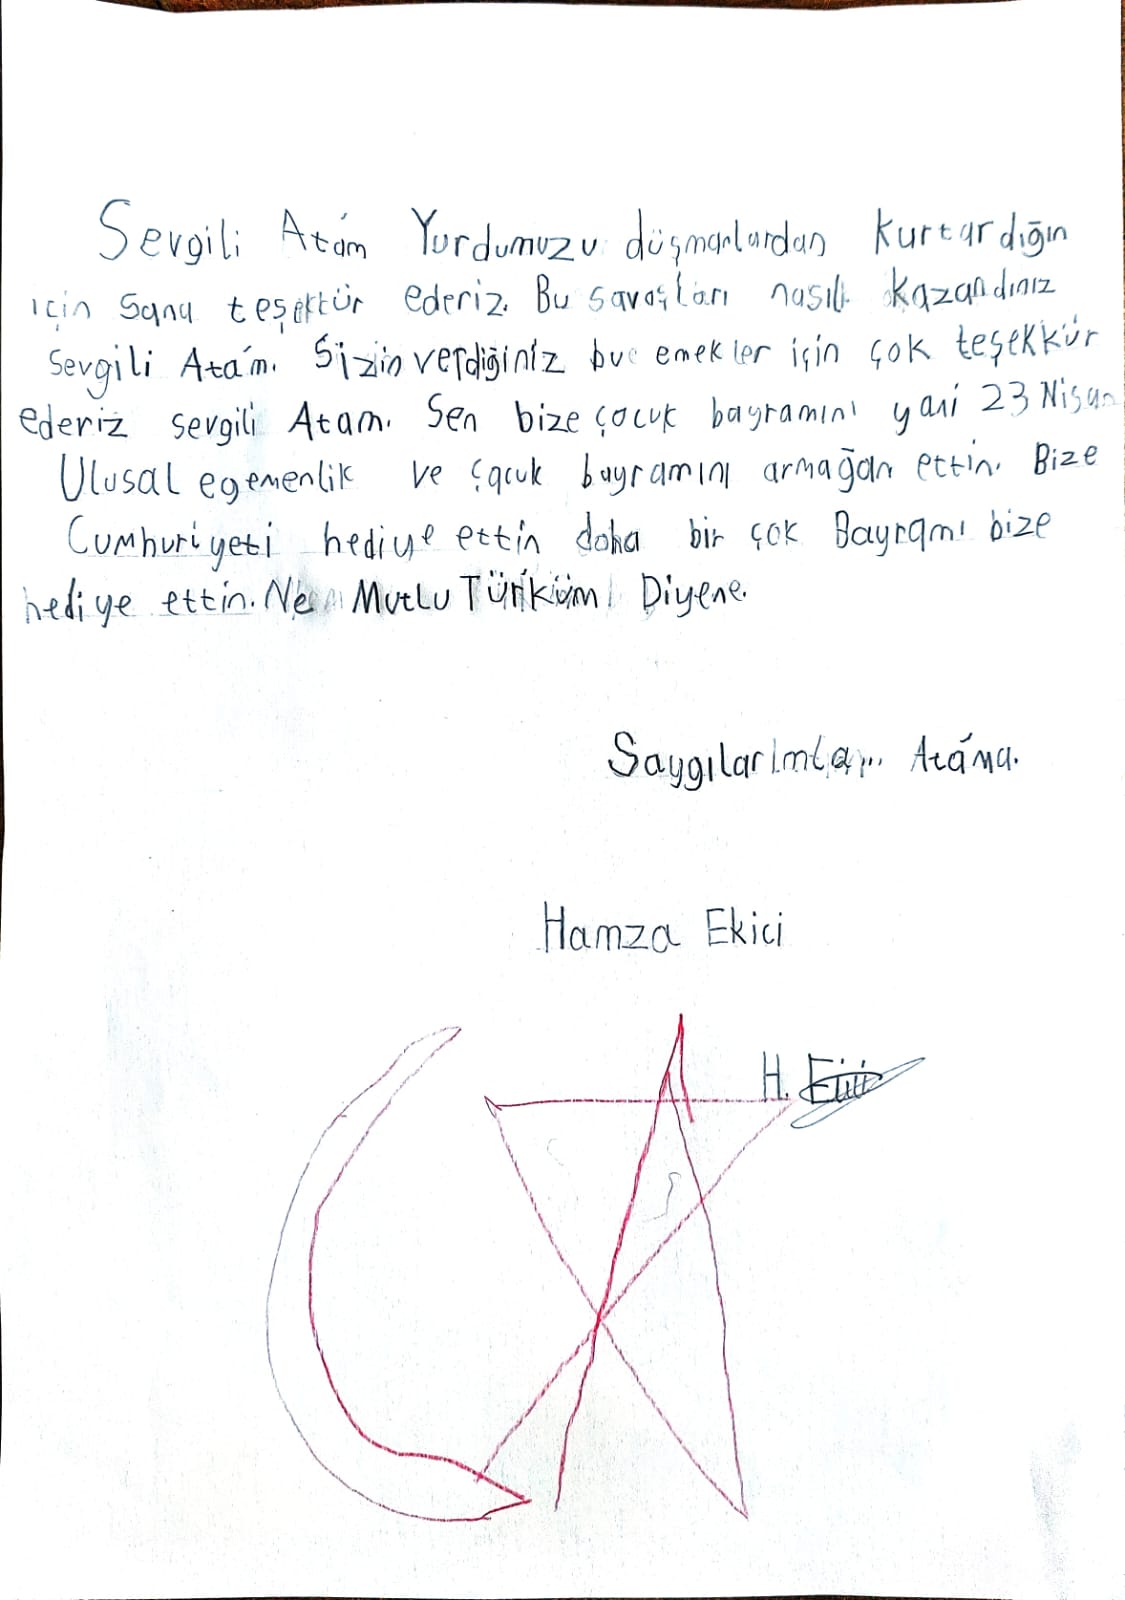 Sevgili Atám Yurdumuzu düşmanlardan kurtardığın
için sana teşekkür ederiz. Bu savaşları nasıl kazandınız
sevgili Ata'm. Sizin verdiğiniz bu emekler için çok teşekkür
ederiz sevgili Atam. Sen bize çocuk bayramını yani 23 Nisan
Ulusal egemenlik ve çocuk bayramını armağan ettin. Bize
Cumhuriyeti hediye ettin daha bir çok Bayramı bize
hediye ettin. Ne Mutlu Türküm Diyene.
Saygılarımla... Atáma.
Hamza Ekici
H.